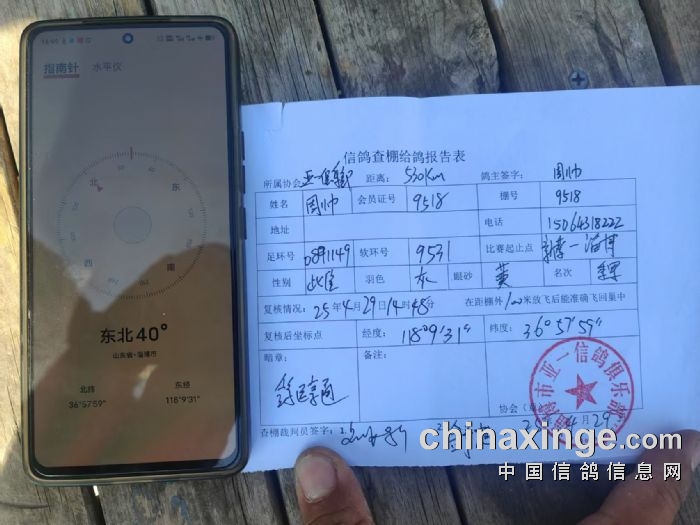 指南针 水平仪
北
东
西
南
东北40°
山东省·淄博市
北纬 东经
36°57'59" 118°9'31"
信鸽查棚给鸽报告表
所属协会 距离: 530Km 鸽主签字: 周帅
姓名 周帅 会员证号 9518 棚号 9518
地址 电话 15064318222
足环号 0891149 软环号 9531 比赛起止点 一淄博
性别 羽色 灰 眼砂 黄 名次 季军
复核情况: 25年4月29日14时48分 在距棚外100米放飞后能准确飞回巢中
复核后坐标点 经度: 118°9'31" 纬度: 36°57'59"
暗章: 备注:
市亚一信鸽俱乐部
协会
4月29
查棚裁判员签字:
chinaxinge.com
中国信鸽信息网